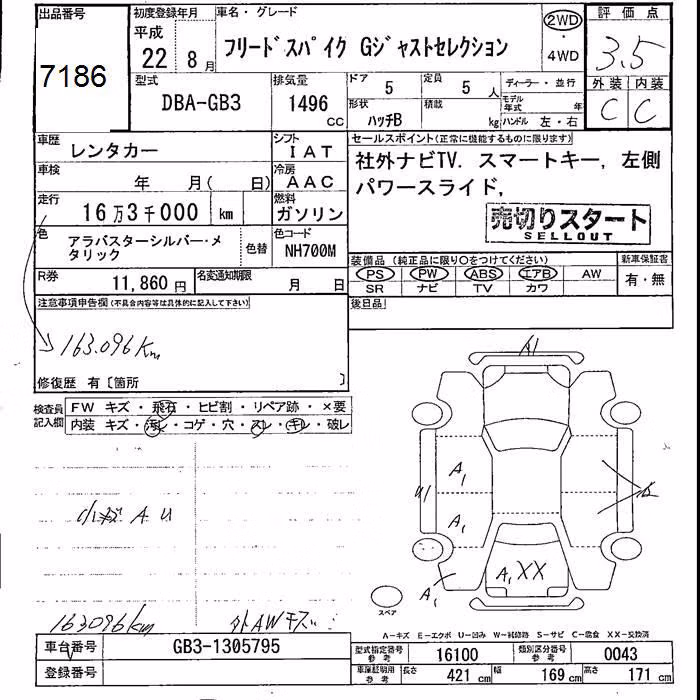 出品番号
7186
初度登録年月
平成
22 8月
車名・グレード
フリードスパイク Gジャストセレクション
2WD
・
4WD
評価点
3.5
外装 内装
C C
型式
DBA-GB3
排気量
1496
CC
ドア
5
定員
5 人
形状
ハッチB
積載
kg
ディーラー・並行
モデル年式 年
ハンドル 左・右
車歴
レンタカー
シフト
IAT
車検
年 月( 日)
冷房
AAC
走行
16万3千000 km
燃料
ガソリン
色
アラバスターシルバー・メ
タリック
色替
色コード
NH700M
R券
11,860 円
名変通知期限
月 日
セールスポイント(正常に機能するものに限ります)
社外ナビTV. スマートキー, 左側
パワースライド,
売切りスタート
SELLOUT
装備品 (純正品に限り○をつけてください)
PS PW ABS エアB AW
SR ナビ TV カワ
新車保証書
有・無
後日品
注意事項申告欄(不具合内容等は具体的に記入して下さい)
163.096Km
修復歴 有〔箇所 〕
検査員
記入欄
FW キズ・飛石・ヒビ割・リペア跡・×要
内装 キズ・汚レ・コゲ・穴・スレ・キレ・破レ
小キズ A U
163096km
外AWキズ
A1
A1
A1
U1
A1 XX
A1
スペア
A-キズ E-エクボ U-凹み W-補修跡 S-サビ C-腐食 XX-交換済
車台番号
GB3-1305795
登録番号
型式指定番号
参考
16100
類別区分番号
参考
0043
車庫証明用
参考
長さ 421 cm
幅 169 cm
高さ 171 cm